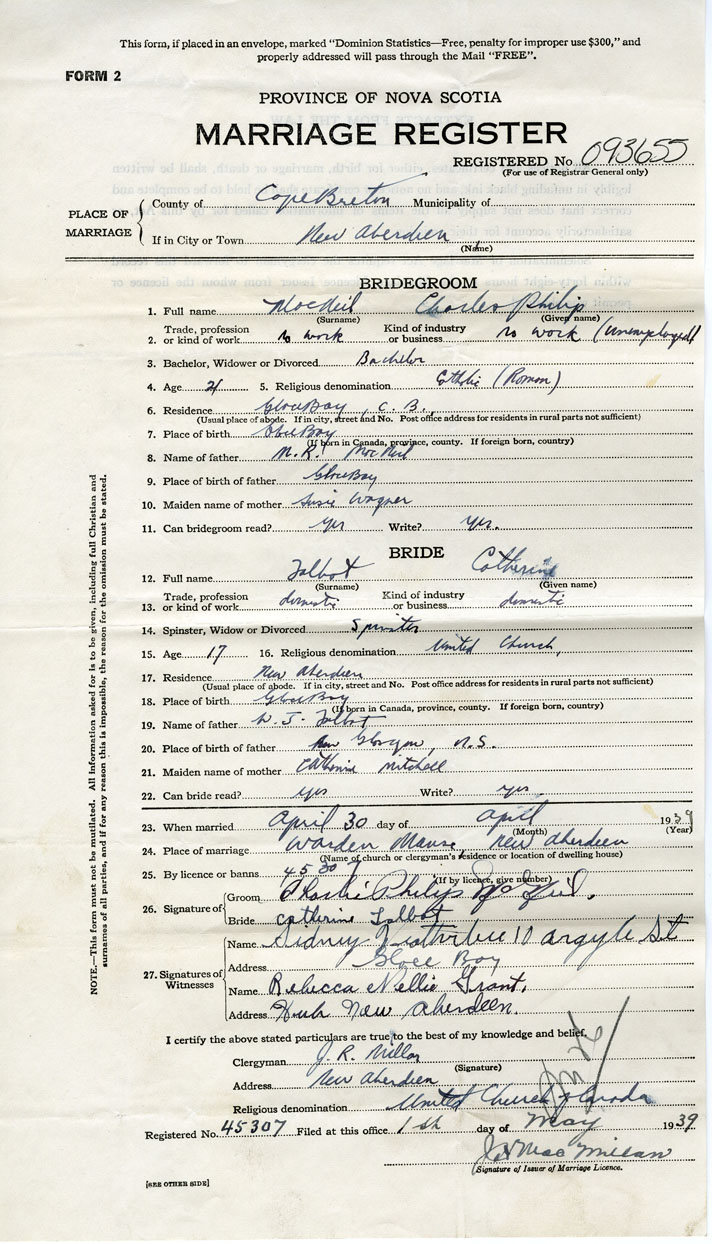 This form, if placed in an envelope, marked "Dominion Statistics—Free, penalty for improper use $300," and
properly addressed will pass through the Mail "FREE".
FORM 2
PROVINCE OF NOVA SCOTIA
MARRIAGE REGISTER
REGISTERED No 093655
(For use of Registrar General only)
PLACE OF MARRIAGE
County of Cape Breton Municipality of
If in City or Town New Aberdeen
(Name)
BRIDEGROOM
1. Full name MacNeil Charles Philip
(Surname) (Given name)
2. Trade, profession or kind of work no work Kind of industry or business no work (unemployed)
3. Bachelor, Widower or Divorced Bachelor
4. Age 21 5. Religious denomination Catholic (Roman)
6. Residence Glace Bay, C. B.,
(Usual place of abode. If in city, street and No. Post office address for residents in rural parts not sufficient)
7. Place of birth Glace Bay
(If born in Canada, province, county. If foreign born, country)
8. Name of father MacNeil
9. Place of birth of father Glace Bay
10. Maiden name of mother Susie Wagner
11. Can bridegroom read? yes Write? yes.
BRIDE
12. Full name Talbot Catherine
(Surname) (Given name)
13. Trade, profession or kind of work domestic Kind of industry or business domestic
14. Spinster, Widow or Divorced Spinster
15. Age 17 16. Religious denomination United Church,
17. Residence New Aberdeen
(Usual place of abode. If in city, street and No. Post office address for residents in rural parts not sufficient)
18. Place of birth Glace Bay
(If born in Canada, province, county. If foreign born, country)
19. Name of father W. J. Talbot
20. Place of birth of father New Glasgow, N.S.
21. Maiden name of mother Catherine Mitchell
22. Can bride read? yes Write? yes
23. When married April 30 day of April 1939
(Month) (Year)
24. Place of marriage Warden Manse, New Aberdeen
(Name of church or clergyman's residence or location of dwelling house)
25. By licence or banns 45307
(If by licence, give number)
26. Signature of
Groom Charlie Philip McNeil.
Bride Catherine Talbot
27. Signatures of Witnesses
Name Sidney 10 Argyle St
Address Glace Bay
Name Rebecca Nellie Grant.
Address Hub New Aberdeen.
I certify the above stated particulars are true to the best of my knowledge and belief.
Clergyman J. R. Millar
(Signature)
Address New Aberdeen
Religious denomination United Church of Canada
Registered No. 45307 Filed at this office 1st day of May 1939
MacMillan
(Signature of Issuer of Marriage Licence.
[SEE OTHER SIDE]
NOTE.—This form must not be mutilated. All information asked for is to be given, including full Christian and
surnames of all parties, and if for any reason this is impossible, the reason for the omission must be stated.